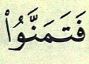 فَتَمَنَّوُا۟